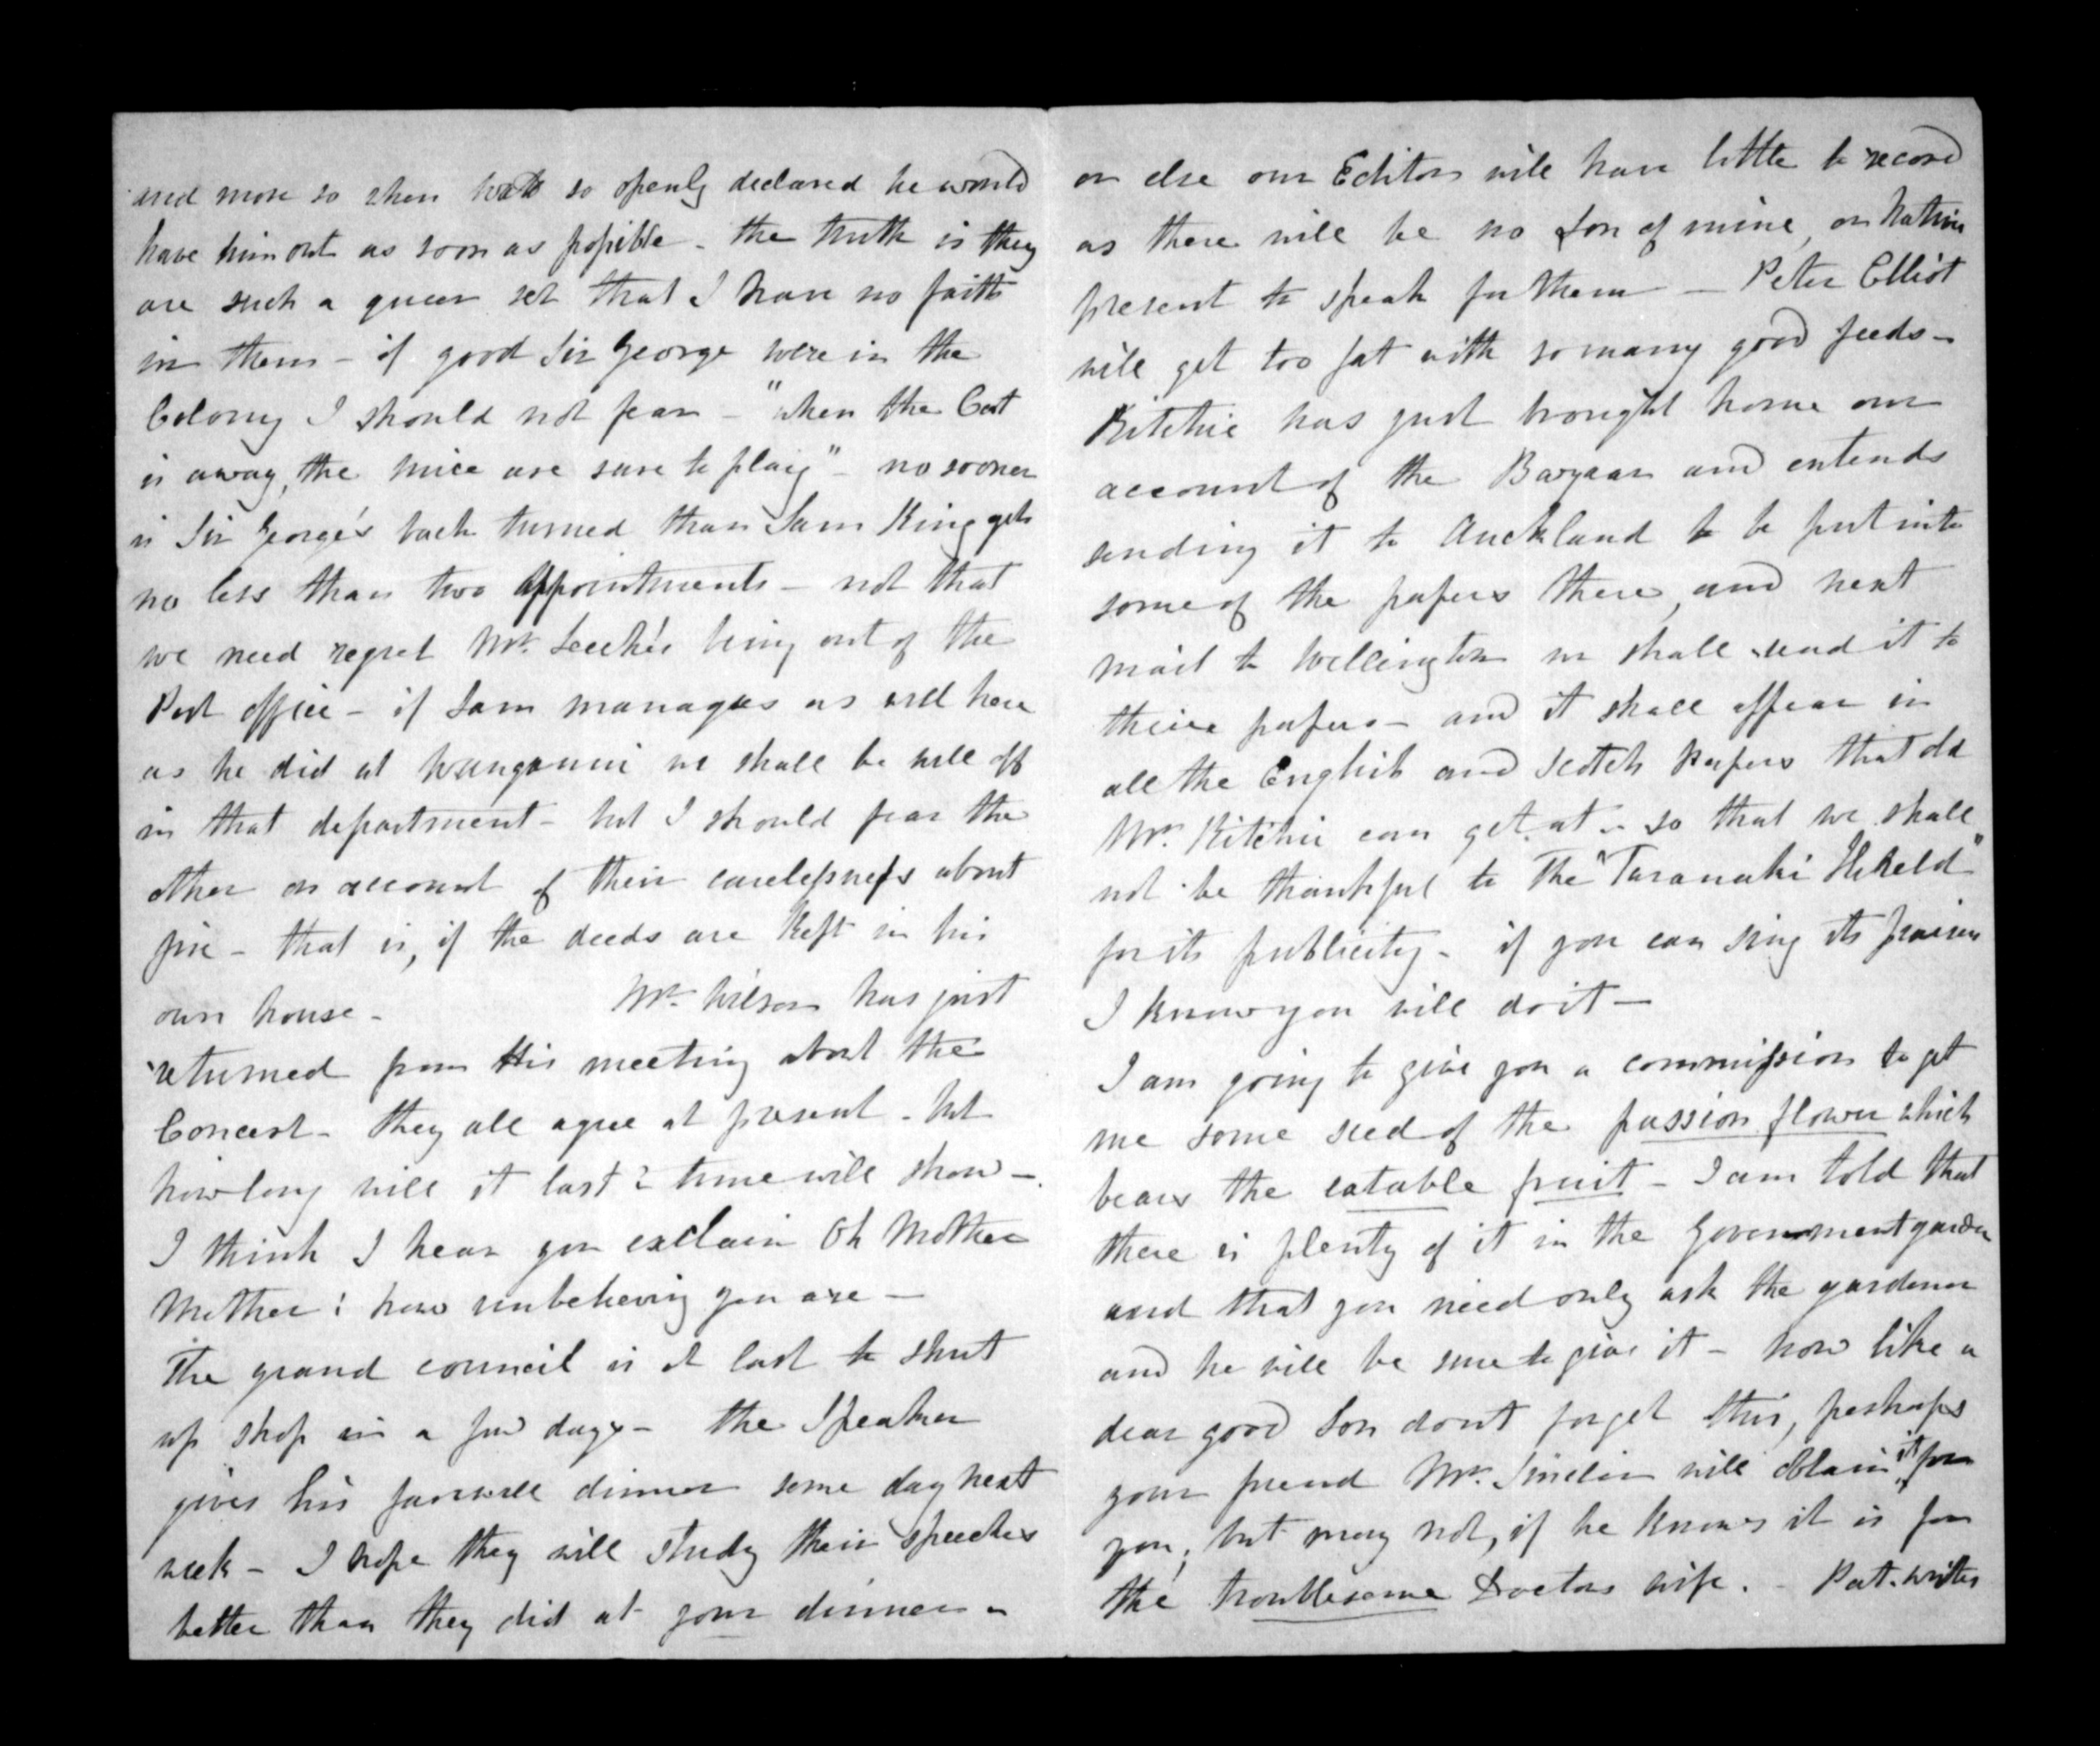 and more so when Watt so openly declared he would
have him out as soon as possible - the truth is they
are such a queer set that I have no faith
in them - if good Sir George were in the
Colony I should not fear - "when the Cat
is away, the mice are sure to play" - no sooner
is Sir George's back turned than Sam King gets
no less than two appointments - not that
we need regret Mr. Leech's being out of the
Post office - if Sam manages as well here
as he did at Wanganui we shall be well off
in that department - but I should fear the
other on account of their carelessness about
fire - that is, if the deeds are kept in his
own house - Mr. Wilson has just
returned from his meeting about the
Concert - they all agree at present - but
how long will it last? time will show -
I think I hear you exclaim Oh Mother
Mother! how unbelieving you are -
The grand council is at last to shut
up shop in a few days - the Speaker
gives his farewell dinner some day next
week - I hope they will study their speeches
better than they did at your dinner -
or else our Editors will have little to record
as there will be no Son of mine, or Native
present to speak for them - Peter Elliot
will get too fat with so many good feeds -
Ritchie has just brought home our
account of the Bazaar and entends
sending it to Auckland to be put into
some of the papers there, and next
mail to Wellington we shall send it to
theire papers - and it shall appear in
all the English and Scotch Papers that old
Mr. Ritchie can get at - so that we shall
not be thankful to The "Taranaki Herald"
for its publicity - if you can sing its praises
I know you will do it -
I am going to give you a commission to get
me some seed of the passion flower which
bears the eatable fruit - I am told that
there is plenty of it in the Government garden
and that you need only ask the gardener
and he will be sure to give it - now like a
dear good Son dont forget this, perhaps
your friend Mr. Sinclair will obtain it for
you, but may not, if he knows it is for
the troublesome Doctors wife. - Pat. writes